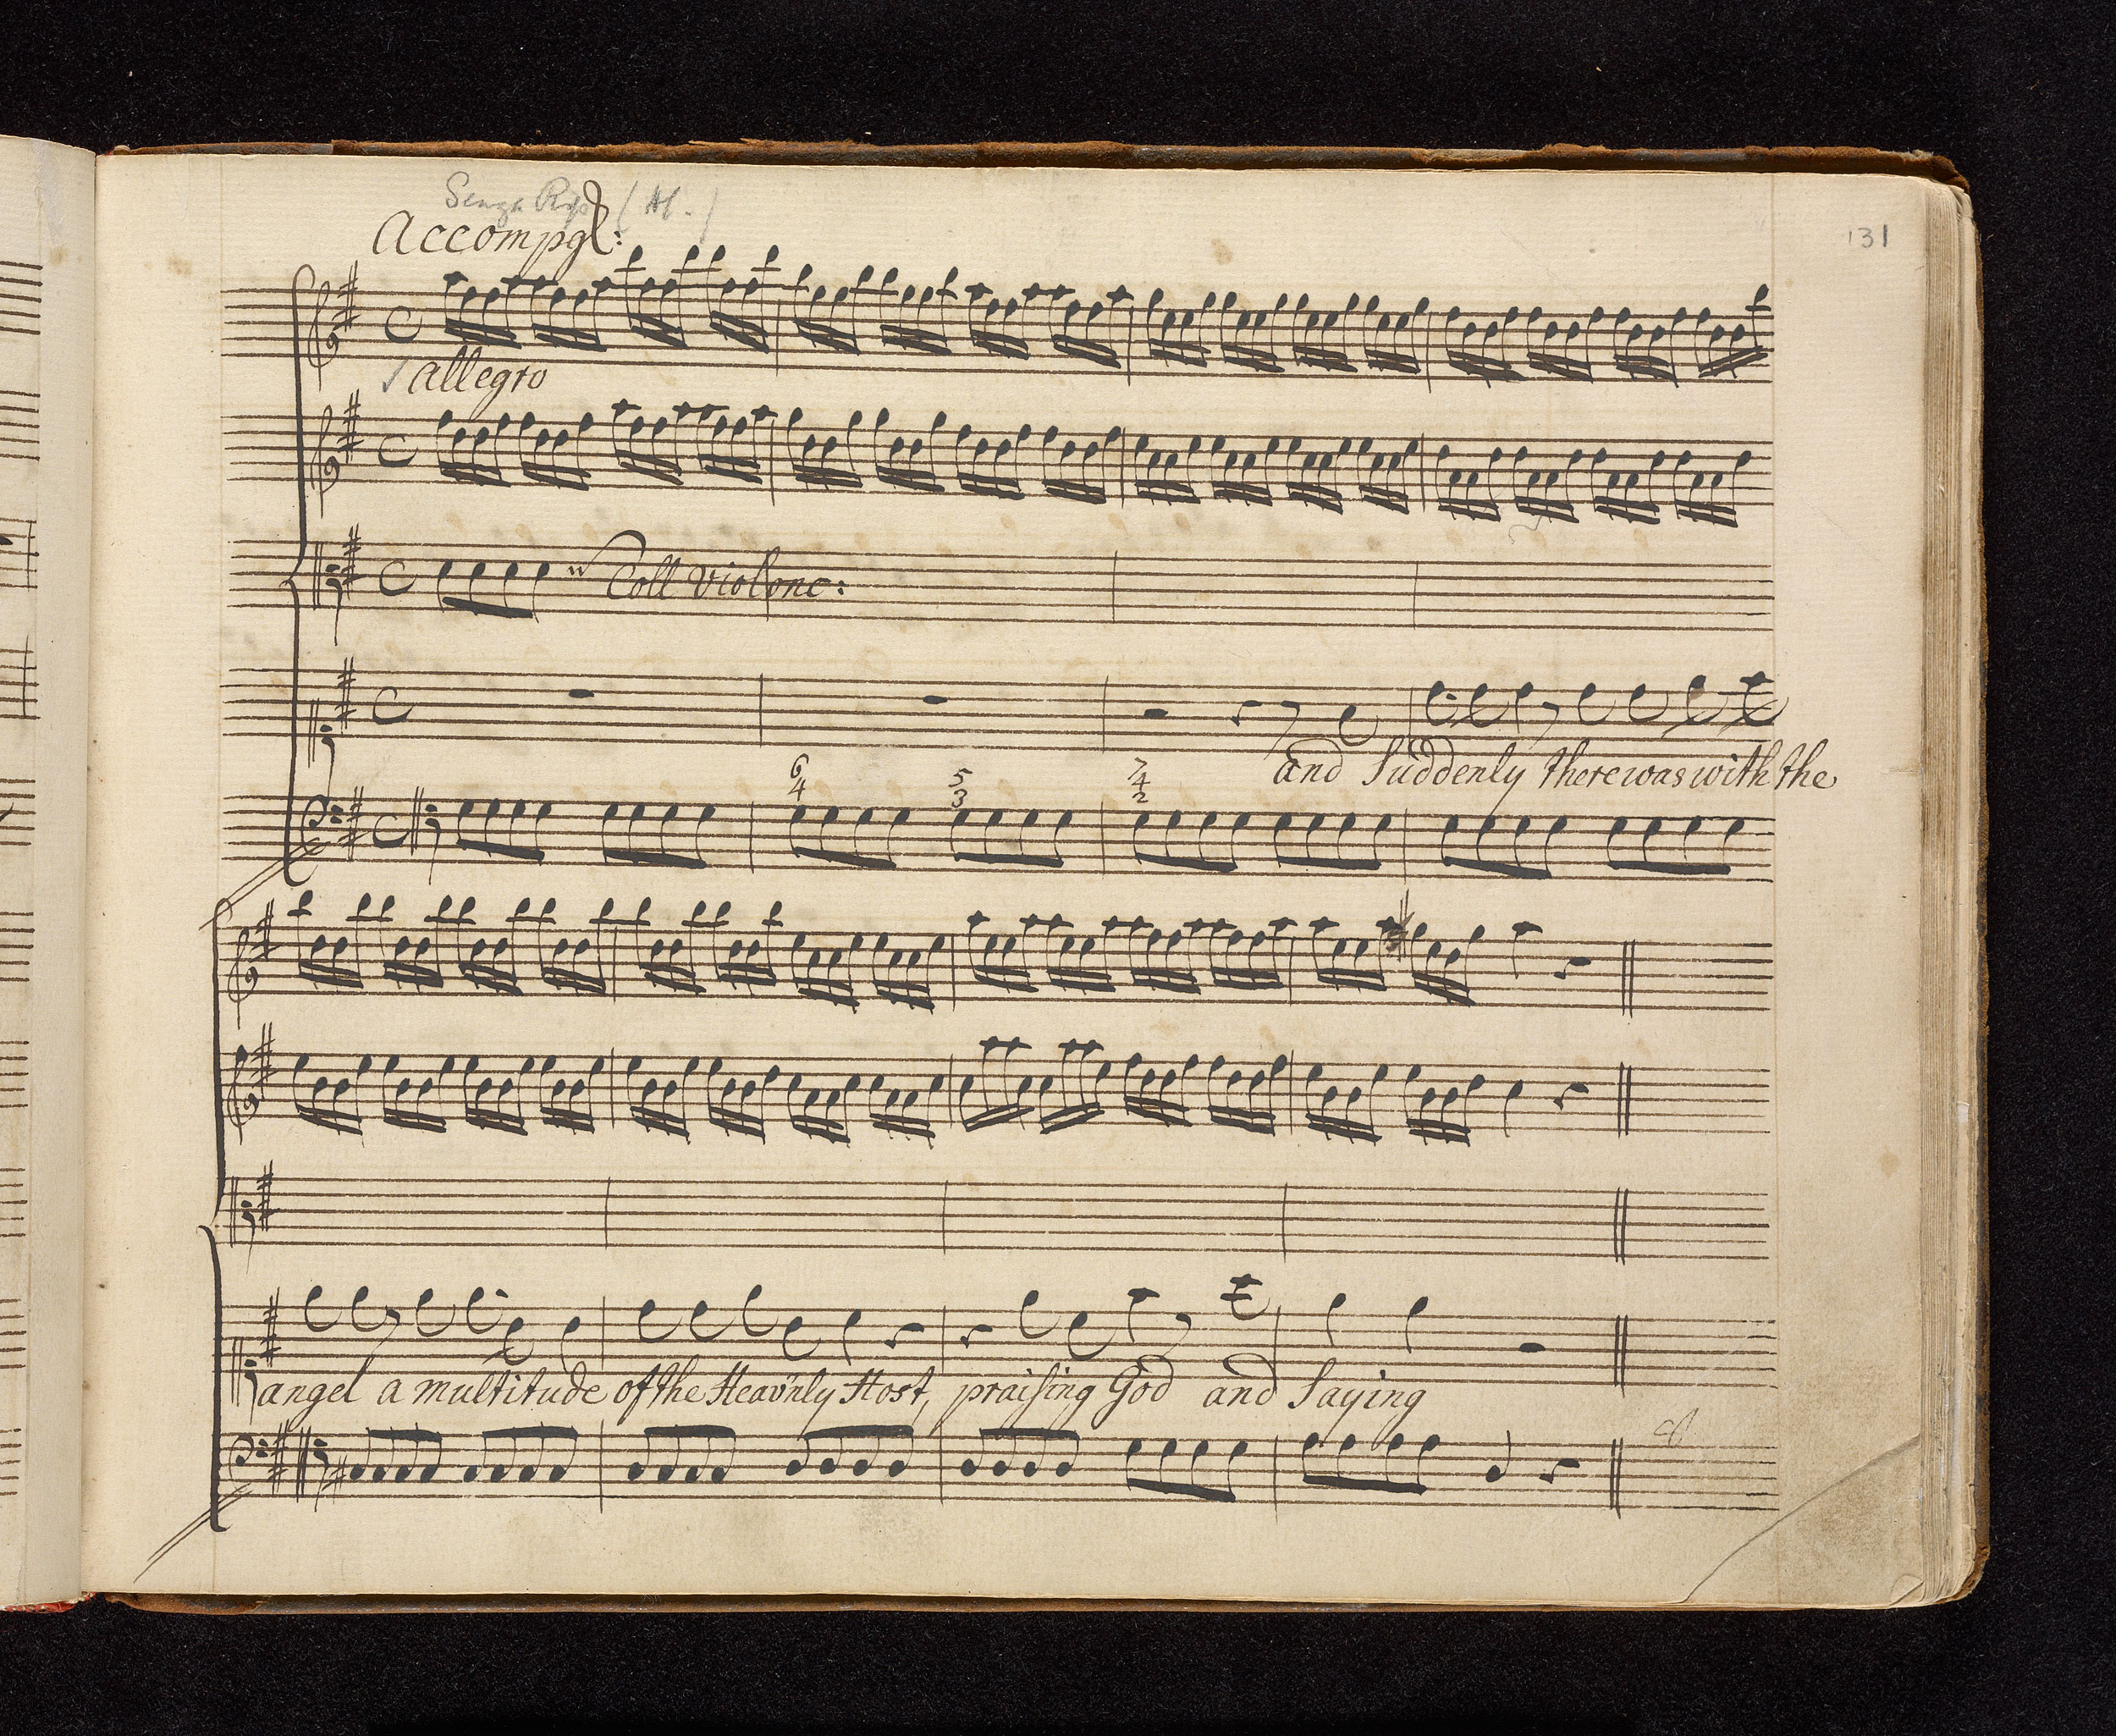 Senza Rip (Af.)
131
Accompg:
allegro
Coll Violonc:
and Suddenly there was with the
6 5 7
4 3 4
2
angel a multitude of the Heav'nly Host, praising God and Saying